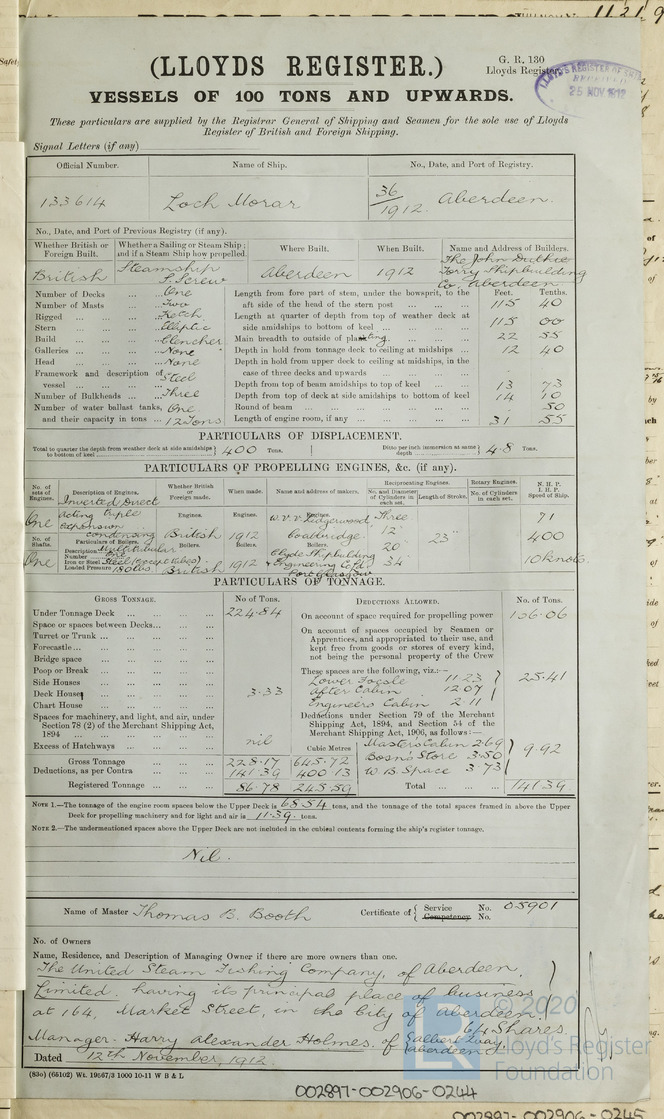 (LLOYDS REGISTER.)
G. R. 130
Lloyds Register
LLOYD'S REGISTER OF
RECEIVED
25 NOV 1912
VESSELS OF 100 TONS AND UPWARDS.
These particulars are supplied by the Registrar General of Shipping and Seamen for the sole use of Lloyds
Register of British and Foreign Shipping.
Signal Letters (if any)
Official Number. Name of Ship. No., Date, and Port of Registry.
133614 Loch Morar 36/1912. Aberdeen.
No., Date, and Port of Previous Registry (if any).
Whether British or Foreign Built. Whether a Sailing or Steam Ship; and if a Steam Ship how propelled. Where Built. When Built. Name and Address of Builders.
British Steamship S. Screw Aberdeen 1912 The John Duthie Torry Shipbuilding Co. Aberdeen
Number of Decks ... One
Number of Masts ... Two
Rigged ... Ketch
Stern ... Elliptic
Build ... Clencher
Galleries ... None
Head ... None
Framework and description of vessel ... Steel
Number of Bulkheads ... Three
Number of water ballast tanks, One
and their capacity in tons ... 12 Tons
Feet. Tenths.
Length from fore part of stem, under the bowsprit, to the aft side of the head of the stern post ... 115 40
Length at quarter of depth from top of weather deck at side amidships to bottom of keel ... 115 00
Main breadth to outside of plating, ... 22 55
Depth in hold from tonnage deck to ceiling at midships ... 12 40
Depth in hold from upper deck to ceiling at midships, in the case of three decks and upwards
Depth from top of beam amidships to top of keel ... 13 73
Depth from top of deck at side amidships to bottom of keel 14 10
Round of beam ... . 50
Length of engine room, if any ... 31 55
PARTICULARS OF DISPLACEMENT.
Total to quarter the depth from weather deck at side amidships to bottom of keel 400 Tons. Ditto per inch immersion at same depth 4.8 Tons.
PARTICULARS OF PROPELLING ENGINES, &c. (if any).
No. of sets of Engines. Description of Engines. Whether British or Foreign made. When made. Name and address of makers. Reciprocating Engines. No. and Diameter of Cylinders in each set. Length of Stroke. Rotary Engines. No. of Cylinders in each set. N. H. P. I. H. P. Speed of Ship.
One Inverted Direct acting triple expansion condensing Engines. British Engines. 1912 Engines. W. V. V. Lidgerwood, Coatbridge. Three 12" 20" 34 23" 71 400 10 knots.
No. of Shafts. One
Particulars of Boilers.
Description Multitubular
Number One
Iron or Steel Steel (except tubes)
Loaded Pressure 180 lbs
Boilers. British Boilers. 1912 Boilers. Clyde Shipbuilding & Engineering Co. Ltd Port Glasgow
PARTICULARS OF TONNAGE.
GROSS TONNAGE. No of Tons. DEDUCTIONS ALLOWED. No. of Tons.
Under Tonnage Deck ... 224.84
Space or spaces between Decks...
Turret or Trunk ...
Forecastle...
Bridge space
Poop or Break
Side Houses
Deck Houses 3.33
Chart House
Spaces for machinery, and light, and air, under Section 78 (2) of the Merchant Shipping Act, 1894
Excess of Hatchways nil
Cubic Metres
Gross Tonnage 228.17 645.72
Deductions, as per Contra 141.39 400.13
Registered Tonnage 86.78 245.59
On account of space required for propelling power 106.06
On account of spaces occupied by Seamen or Apprentices, and appropriated to their use, and kept free from goods or stores of every kind, not being the personal property of the Crew
These spaces are the following, viz:—
Lower Focsle 11.23
After Cabin 12.07
Engineers Cabin 2.11
25.41
Deductions under Section 79 of the Merchant Shipping Act, 1894, and Section 54 of the Merchant Shipping Act, 1906, as follows:—
Master's Cabin 2.69
Bosn's Store 3.50
W. B. Space 3.73
9.92
Total ... 141.39
NOTE 1.—The tonnage of the engine room spaces below the Upper Deck is 68.54 tons, and the tonnage of the total spaces framed in above the Upper
Deck for propelling machinery and for light and air is 11.39. tons.
NOTE 2.—The undermentioned spaces above the Upper Deck are not included in the cubical contents forming the ship's register tonnage.
Nil.
Name of Master Thomas B. Booth Certificate of Service No. 05901
Competency No.
No. of Owners
Name, Residence, and Description of Managing Owner if there are more owners than one.
The United Steam Fishing Company, of Aberdeen,
Limited, having its principal place of business
at 164, Market Street, in the City of Aberdeen.
64 Shares
Manager. Harry Alexander Holmes. of Quay, Aberdeen
Dated 12th November, 1912
(83o) (65102) Wt. 19567/3 1000 10-11 W B & L
© 2020
LR
Lloyd's Register
Foundation
002897-002906-0244
002897-002906-0245